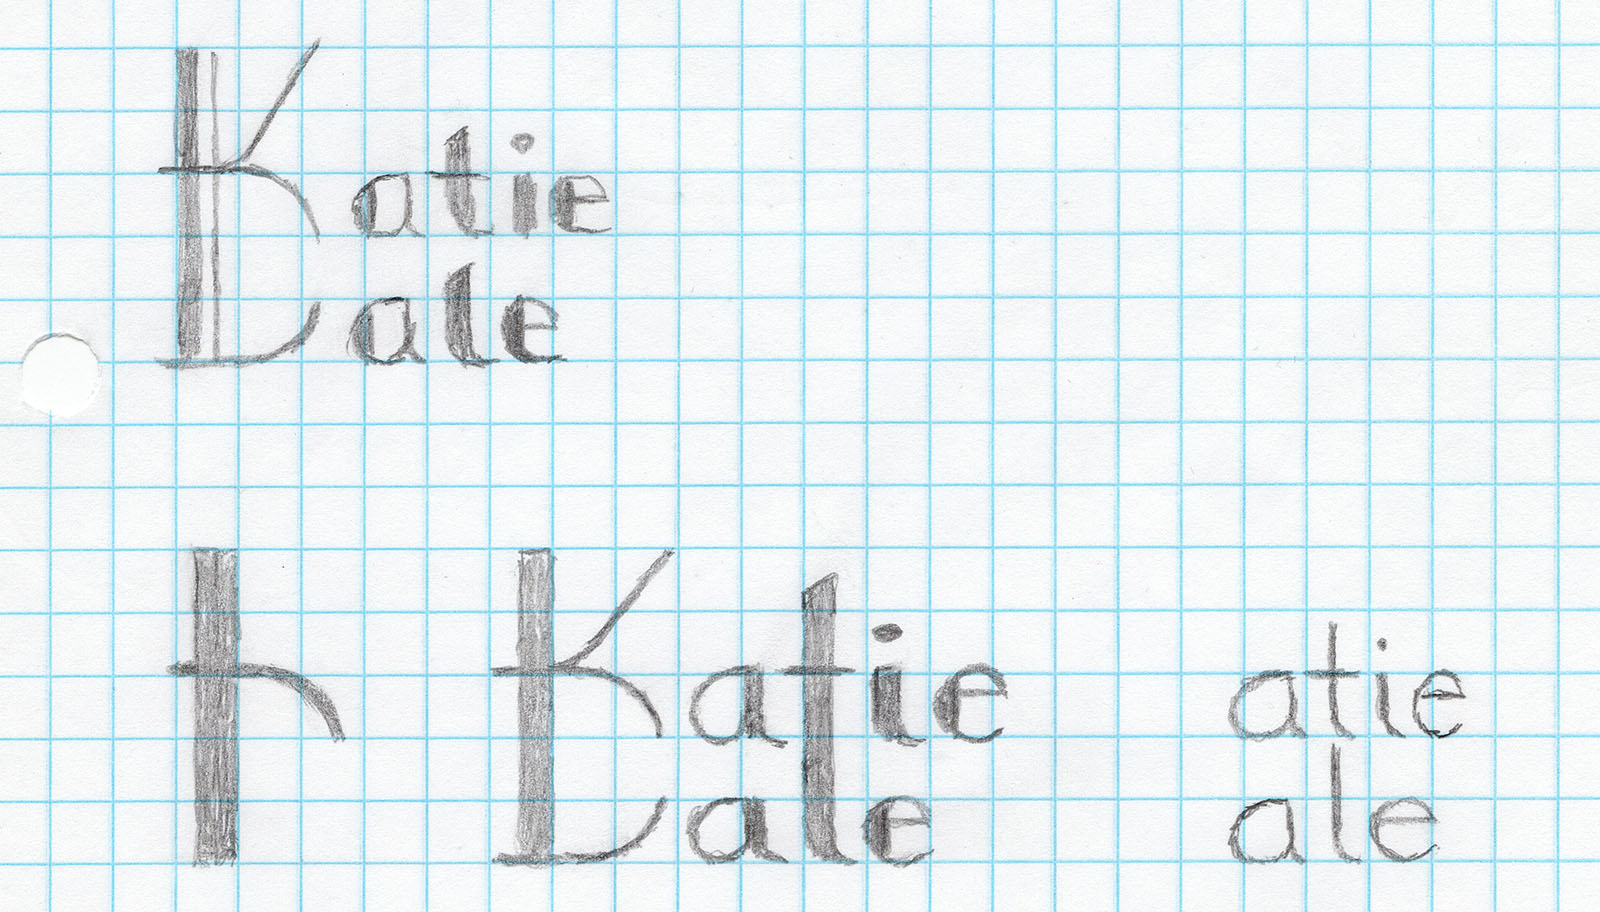 Katie
Dale
Katie atie
Dale ale